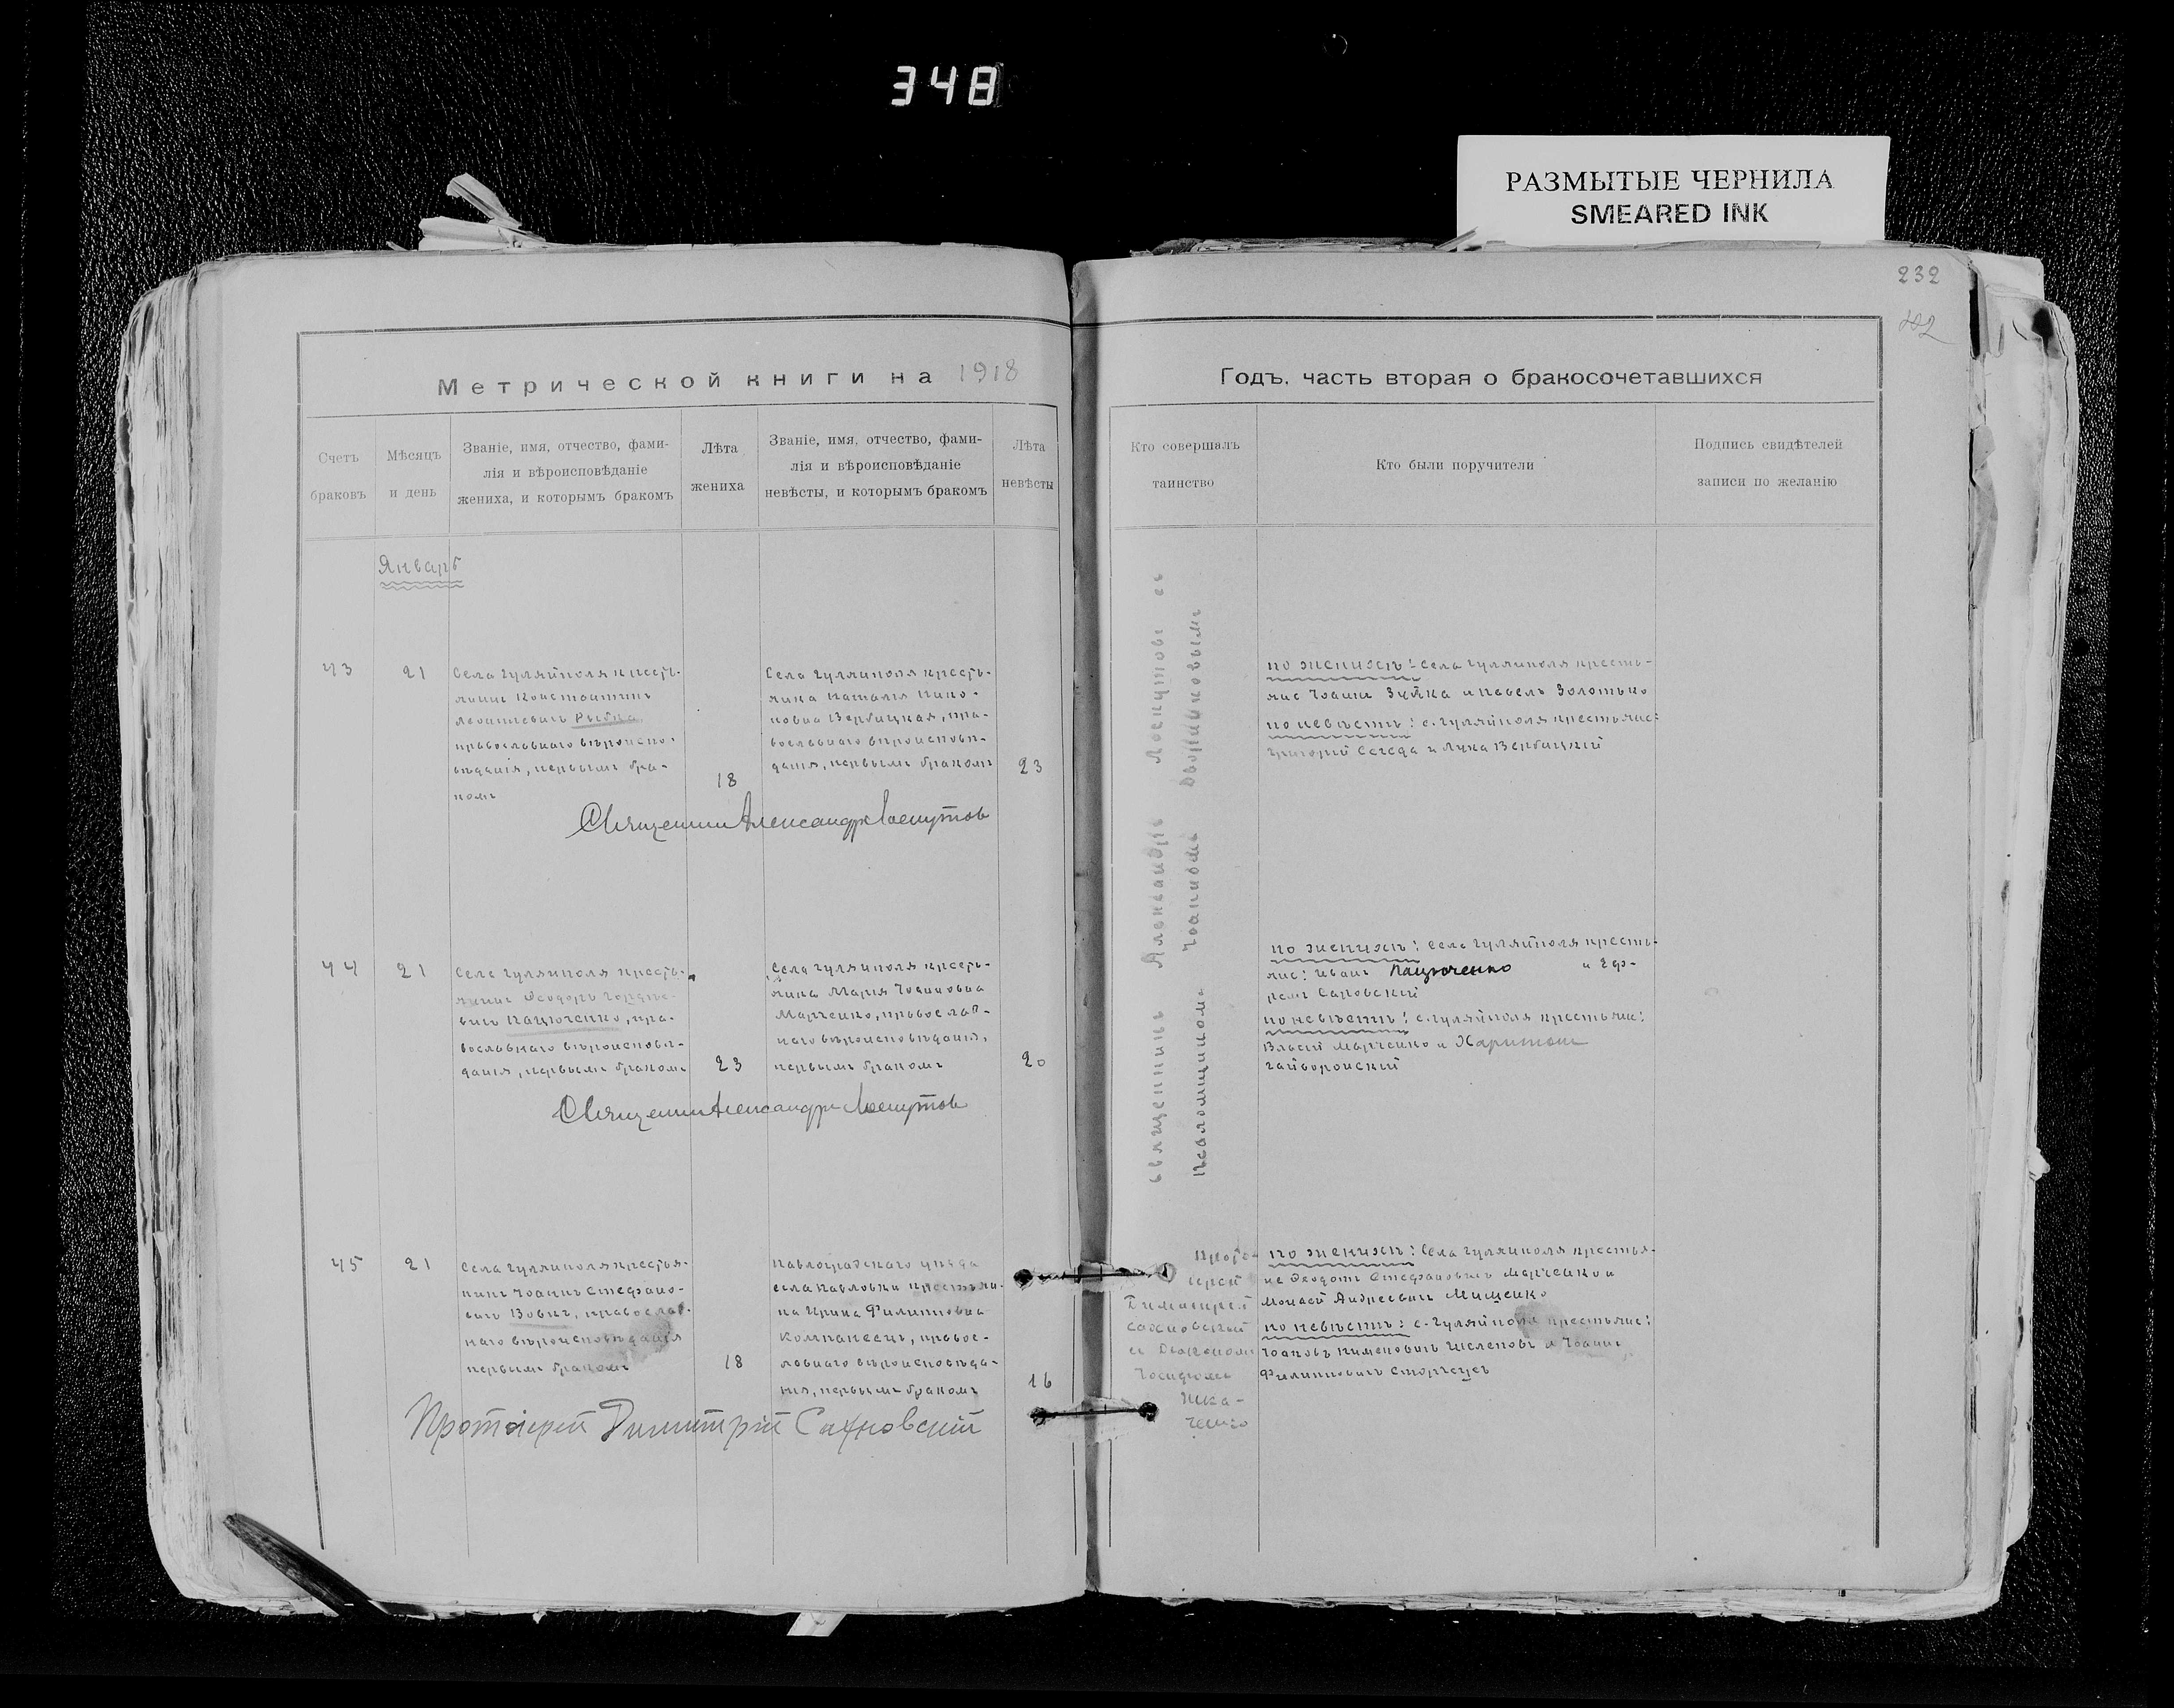 348
РАЗМЫТЫЕ ЧЕРНИЛА
SMEARED INK
232
Метрической книги на 1918
Годъ, часть вторая о бракосочетавшихся
Счетъ
браковъ
Мѣсяцъ
и день
Званіе, имя, отчество, фами-
лія и вѣроисповѣданіе
жениха, и которымъ бракомъ
Лѣта
жениха
Званіе, имя, отчество, фами-
лія и вѣроисповѣданіе
невѣсты, и которымъ бракомъ
Лѣта
невѣсты
Кто совершалъ
таинство
Кто были поручители
Подпись свидѣтелей
записи по желанію
Январь
43
21
Села Гуляйполя кресть-
янинъ Константинъ
Леонтіевичъ Рыбка,
православнаго вѣроиспо-
вѣданія, первымъ бра-
комъ
18
Села Гуляйполя кресть-
янка Наталія
Вербицкая, пра-
вославнаго вѣроисповѣ-
данія, первымъ бракомъ
23
Священникъ Александръ Лоскутовъ
Священникъ Александръ Лоскутовъ съ
псаломщикомъ Іоанномъ Двойниковымъ
по женихѣ: Села Гуляйполя кресть-
яне Іоаннъ Зуйка и Павелъ Золотько
по невѣстѣ: с. Гуляйполя крестьяне:
Григорій Середа и Лука Вербицкій
44
21
Села Гуляйполя кресть-
янинъ Ѳеодоръ
вичъ Пацюченко, пра-
вославнаго вѣроисповѣ-
данія, первымъ бракомъ
23
Села Гуляйполя кресть-
янка Марія Іоанновна
Марченко, православ-
наго вѣроисповѣданія,
первымъ бракомъ
20
Священникъ Александръ Лоскутовъ
по женихѣ: Села Гуляйполя кресть-
яне: Иванъ Пацюченко и Еф-
ремъ Саповскій
по невѣстѣ: с. Гуляйполя крестьяне:
Власій Марченко и Харитонъ
Гайворонскій
45
21
Села Гуляйполя крестья-
нинъ Іоаннъ Стефано-
вичъ Вовкъ, православ-
наго вѣроисповѣданія
первымъ бракомъ
18
Павлоградскаго уѣзда
села Павловки крестьян-
ка Ирина Филипповна
Компанеецъ, правос-
лавнаго вѣроисповѣда-
нія, первымъ бракомъ
16
Протоіерей Димитрій Сахновскій
Прото-
іерей
Димитрій
Сахновскій
съ Діакономъ
Іосифомъ
по женихѣ: Села Гуляйполя крестья-
не Ѳеодотъ Стефановичъ Марченко и
Моисей Андреевичъ Мищенко
по невѣстѣ: с. Гуляйполя крестьяне:
Іаковъ Пименовичъ Шелеповъ и Іоаннъ
Филипповичъ Сторчеусъ